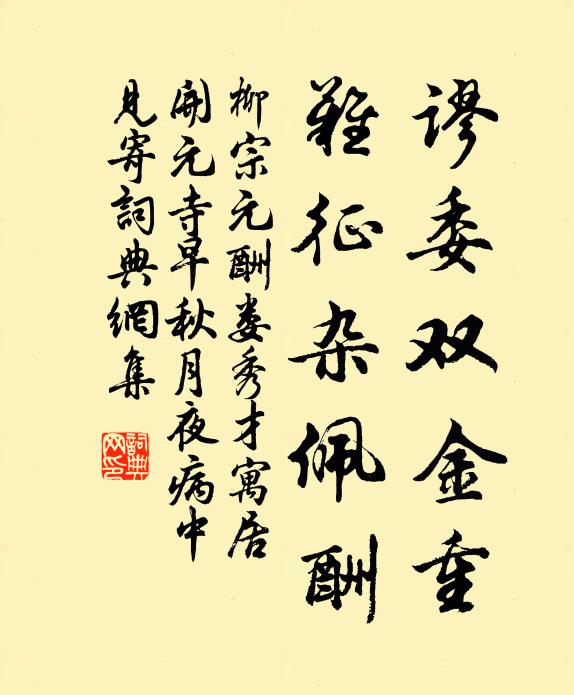 谬委双金重
难征杂佩酬
柳宗元酬娄秀才寓居
開元寺早秋月夜病中
見寄詞典網集
詞典
网印